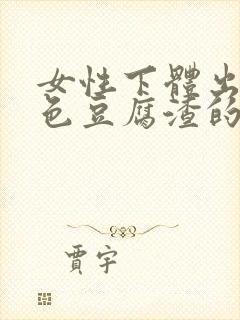 女性下體出
色豆腐渣的
賈宇